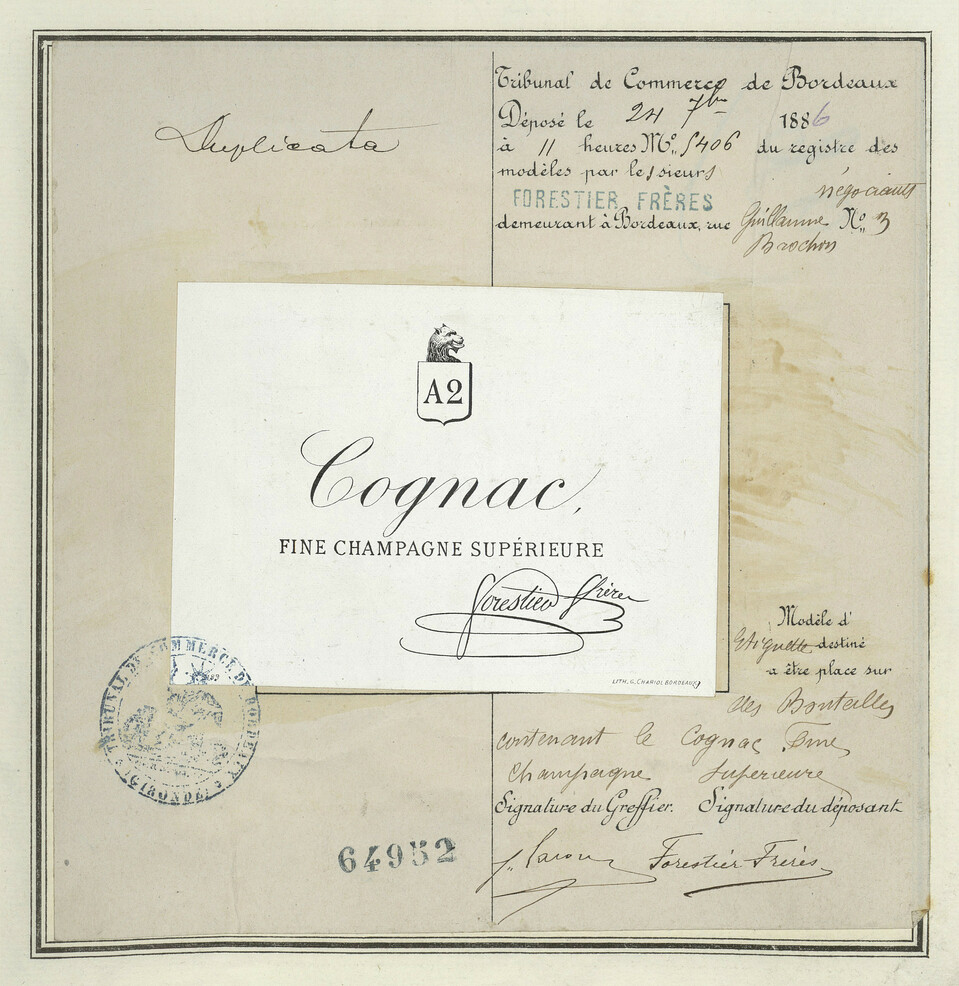 Duplicata
Tribunal de Commerce de Bordeaux
Déposé le 24 7bre 1886
à 11 heures No. 5406 du registre des
modèles par les sieurs
FORESTIER FRÈRES négociants
demeurant à Bordeaux, rue Guillaume No. 3
Brochon
A2
Cognac,
FINE CHAMPAGNE SUPÉRIEURE
Forestier Frères
LITH. G. CHARIOL BORDEAUX
Modèle d'
Etiquette destiné
a être place sur
des Bouteilles
contenant le Cognac Fine
Champagne Superieure
Signature du Greffier. Signature du déposant
Forestier Frères
TRIBUNAL DE COMMERCE DE BORDEAUX
(GIRONDE)
64952